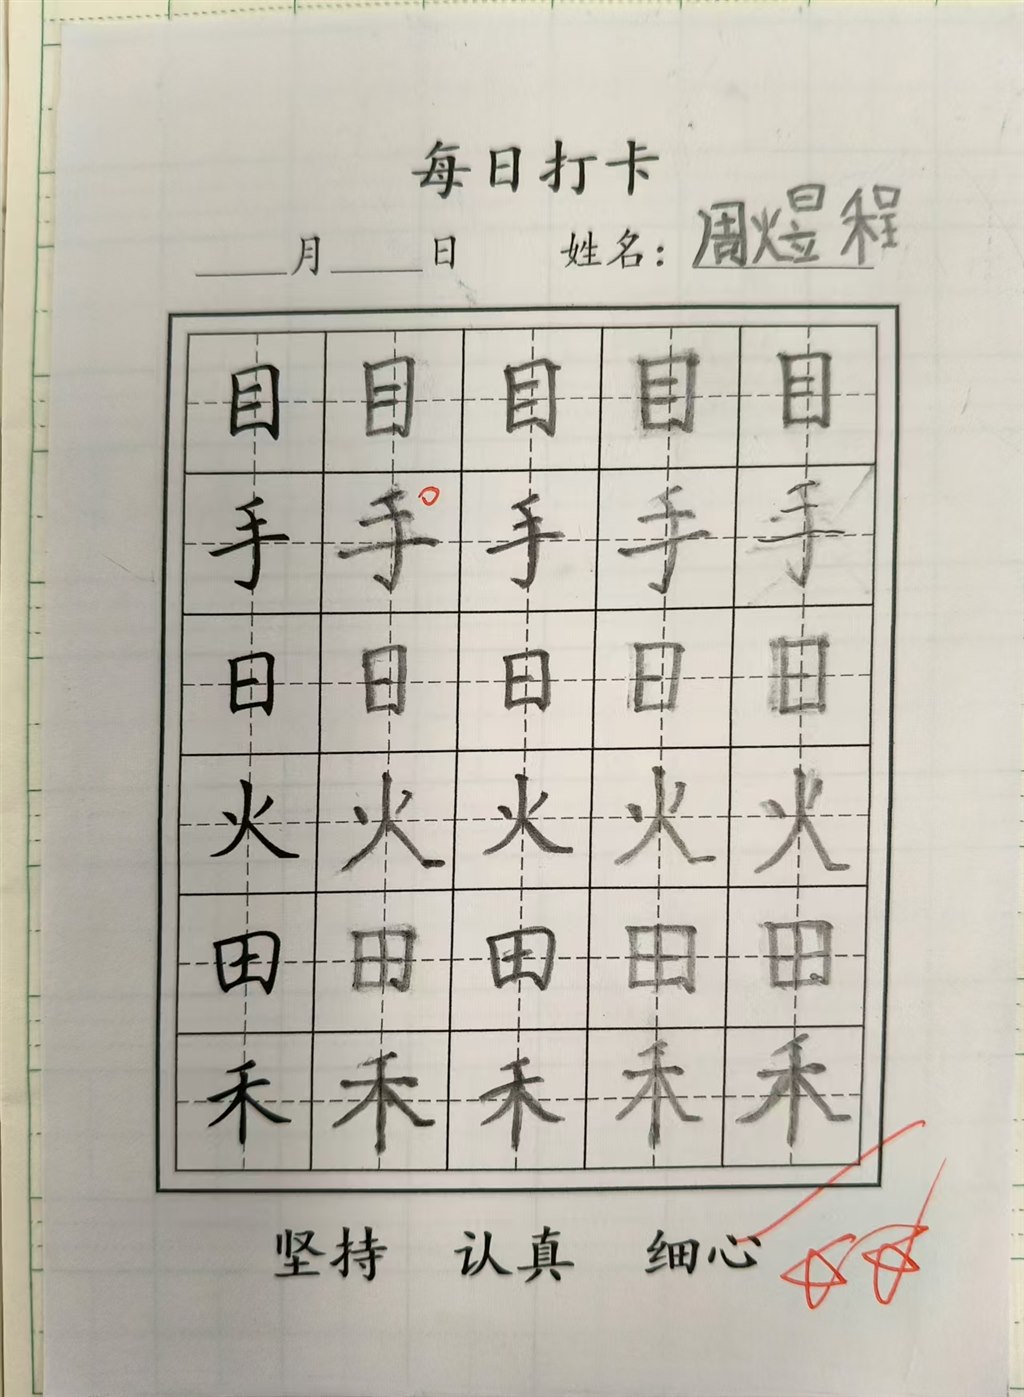 每日打卡
____月____日 姓名：周煜程
目 目 目 目 目
手 手 手 手 手
日 日 日 日 日
火 火 火 火 火
田 田 田 田 田
禾 禾 禾 禾 禾
坚持 认真 细心